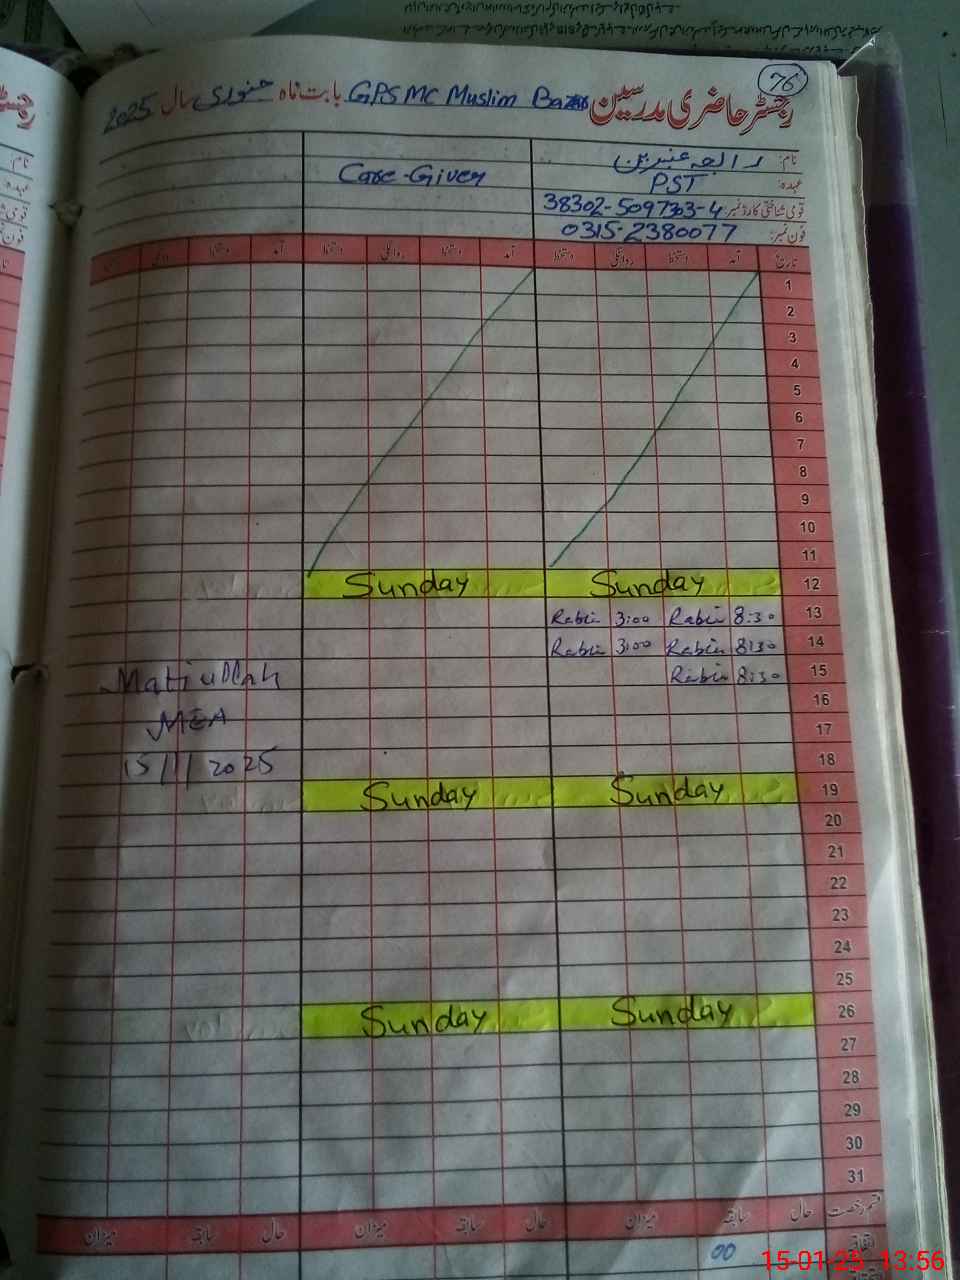 76
رجسٹر حاضری مدرسین GPS MC Muslim بابت ماہ جنوری سال 2025
نام: رابعہ عنبرین
Care-Giver
عہدہ: PST
قومی شناختی کارڈ نمبر 38302-5097303-4
فون نمبر: 0315-2380077
تاریخ آمد دستخط روانگی دستخط آمد دستخط روانگی دستخط آمد دستخط
1
2
3
4
5
6
7
8
9
10
11
Sunday Sunday 12
Rabia 3:00 Rabia 8:30 13
Rabia 3:00 Rabia 8:30 14
Rabia 8:30 15
Matiullah
16
MEA
17
15/1/2025
18
Sunday Sunday 19
20
21
22
23
24
25
Sunday Sunday 26
27
28
29
30
31
قسم رخصت حال سابقہ میزان حال سابقہ میزان حال سابقہ میزان
اتفاقیہ 00
15-01-25 13:56